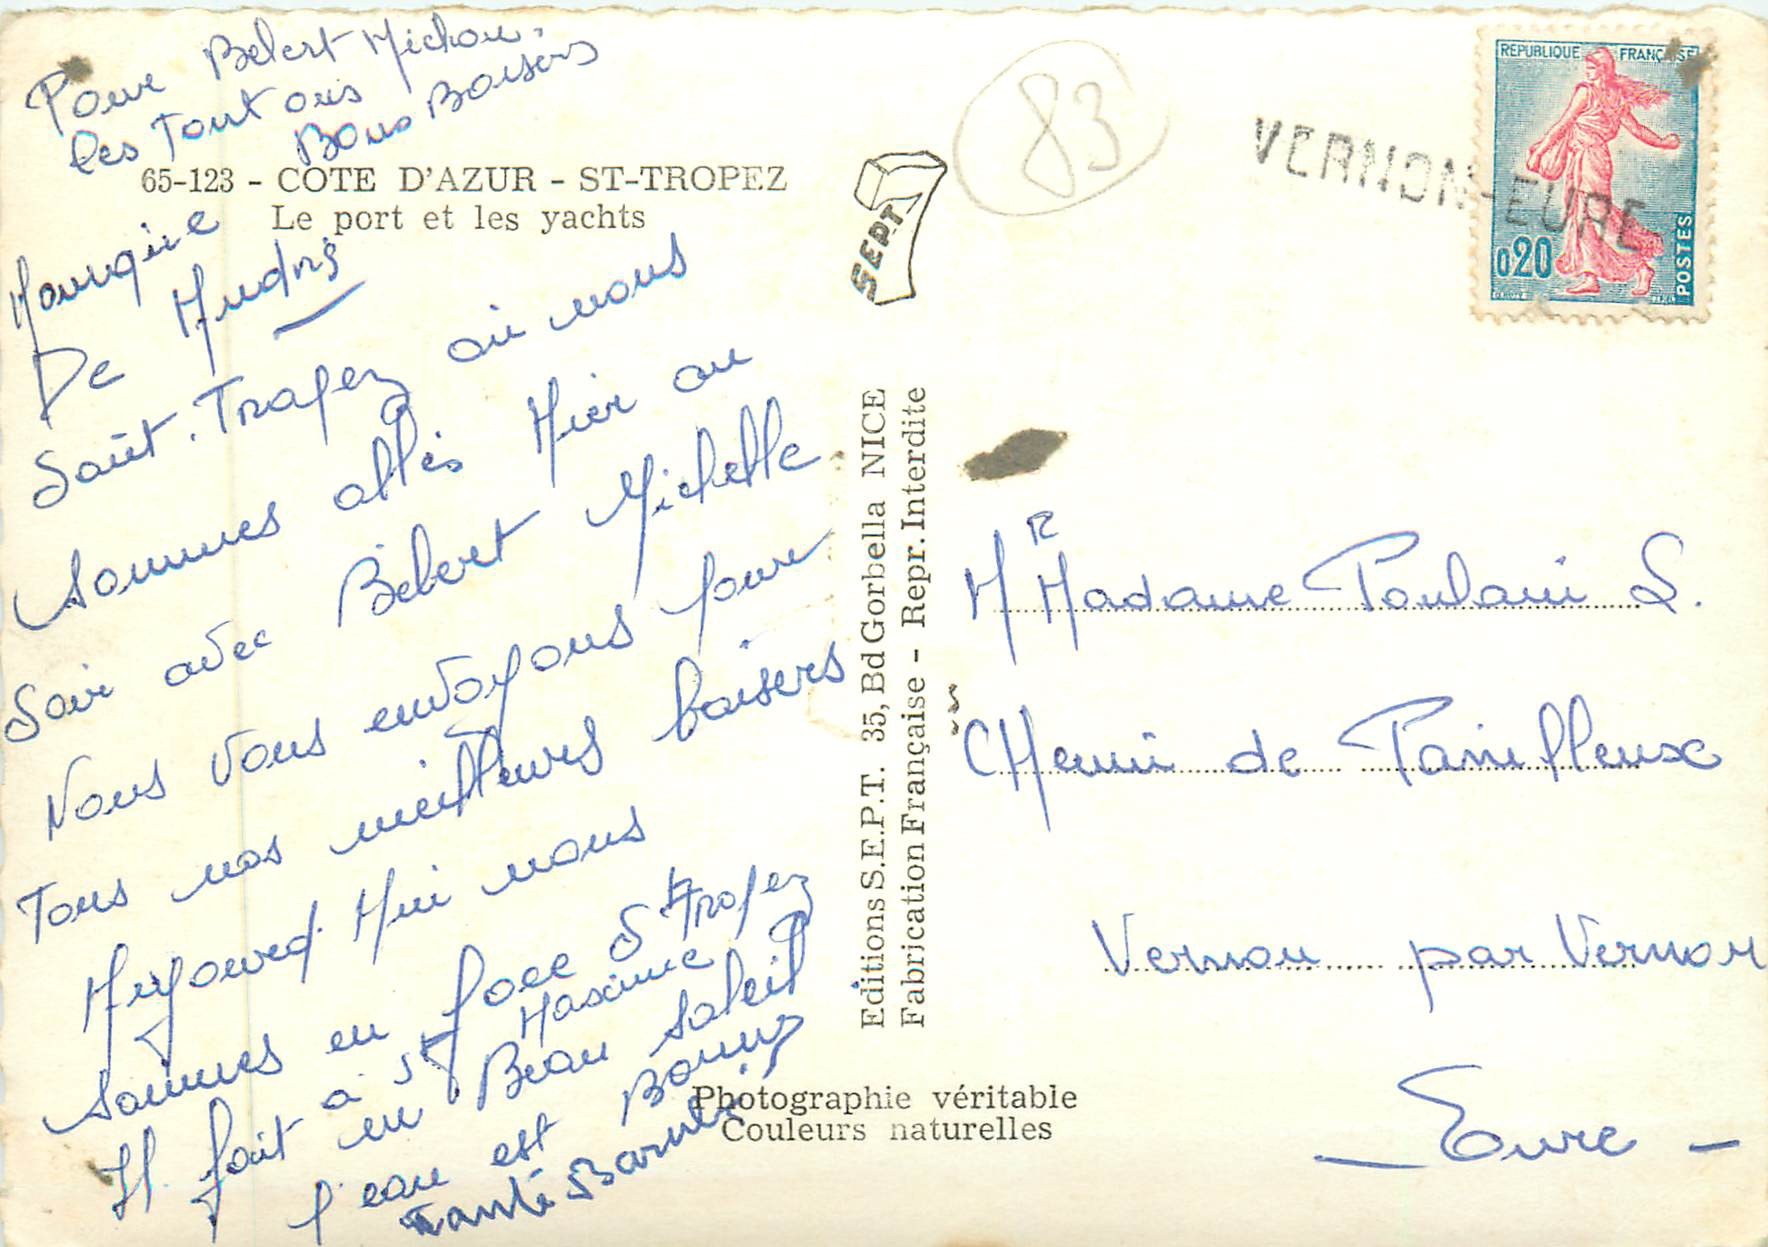 Pour Bebert Michou.
les Tontons
Bons Baisers
65-123 - COTE D'AZUR - ST-TROPEZ
Le port et les yachts
De
Saint. Tropez où nous
sommes allés Hier au
Soir avec Bébert Michelle
Nous vous envoyons pour
Tous nos meilleurs baisers
Aujourd'Hui nous
sommes en face St Tropez
à St Maxime
Il fait un Beau soleil
l'eau est Bonne
SEPT
Editions S.E.P.T. 35, Bd Gorbella NICE
Fabrication Française - Repr. Interdite
Photographie véritable
Couleurs naturelles
83
VERNON-EURE
REPUBLIQUE FRANÇAISE
0,20
POSTES
Mr Madame Poulain S.
CHemin de
Vernon par Vernon
- Eure -